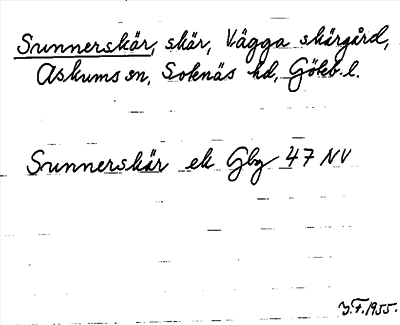 Sunnerskär, skär, Vägga skärgård,
Askums sn, Sotenäs hd, Göteb. l.
Sunnerskär ek Gbg 47 NV
1955.